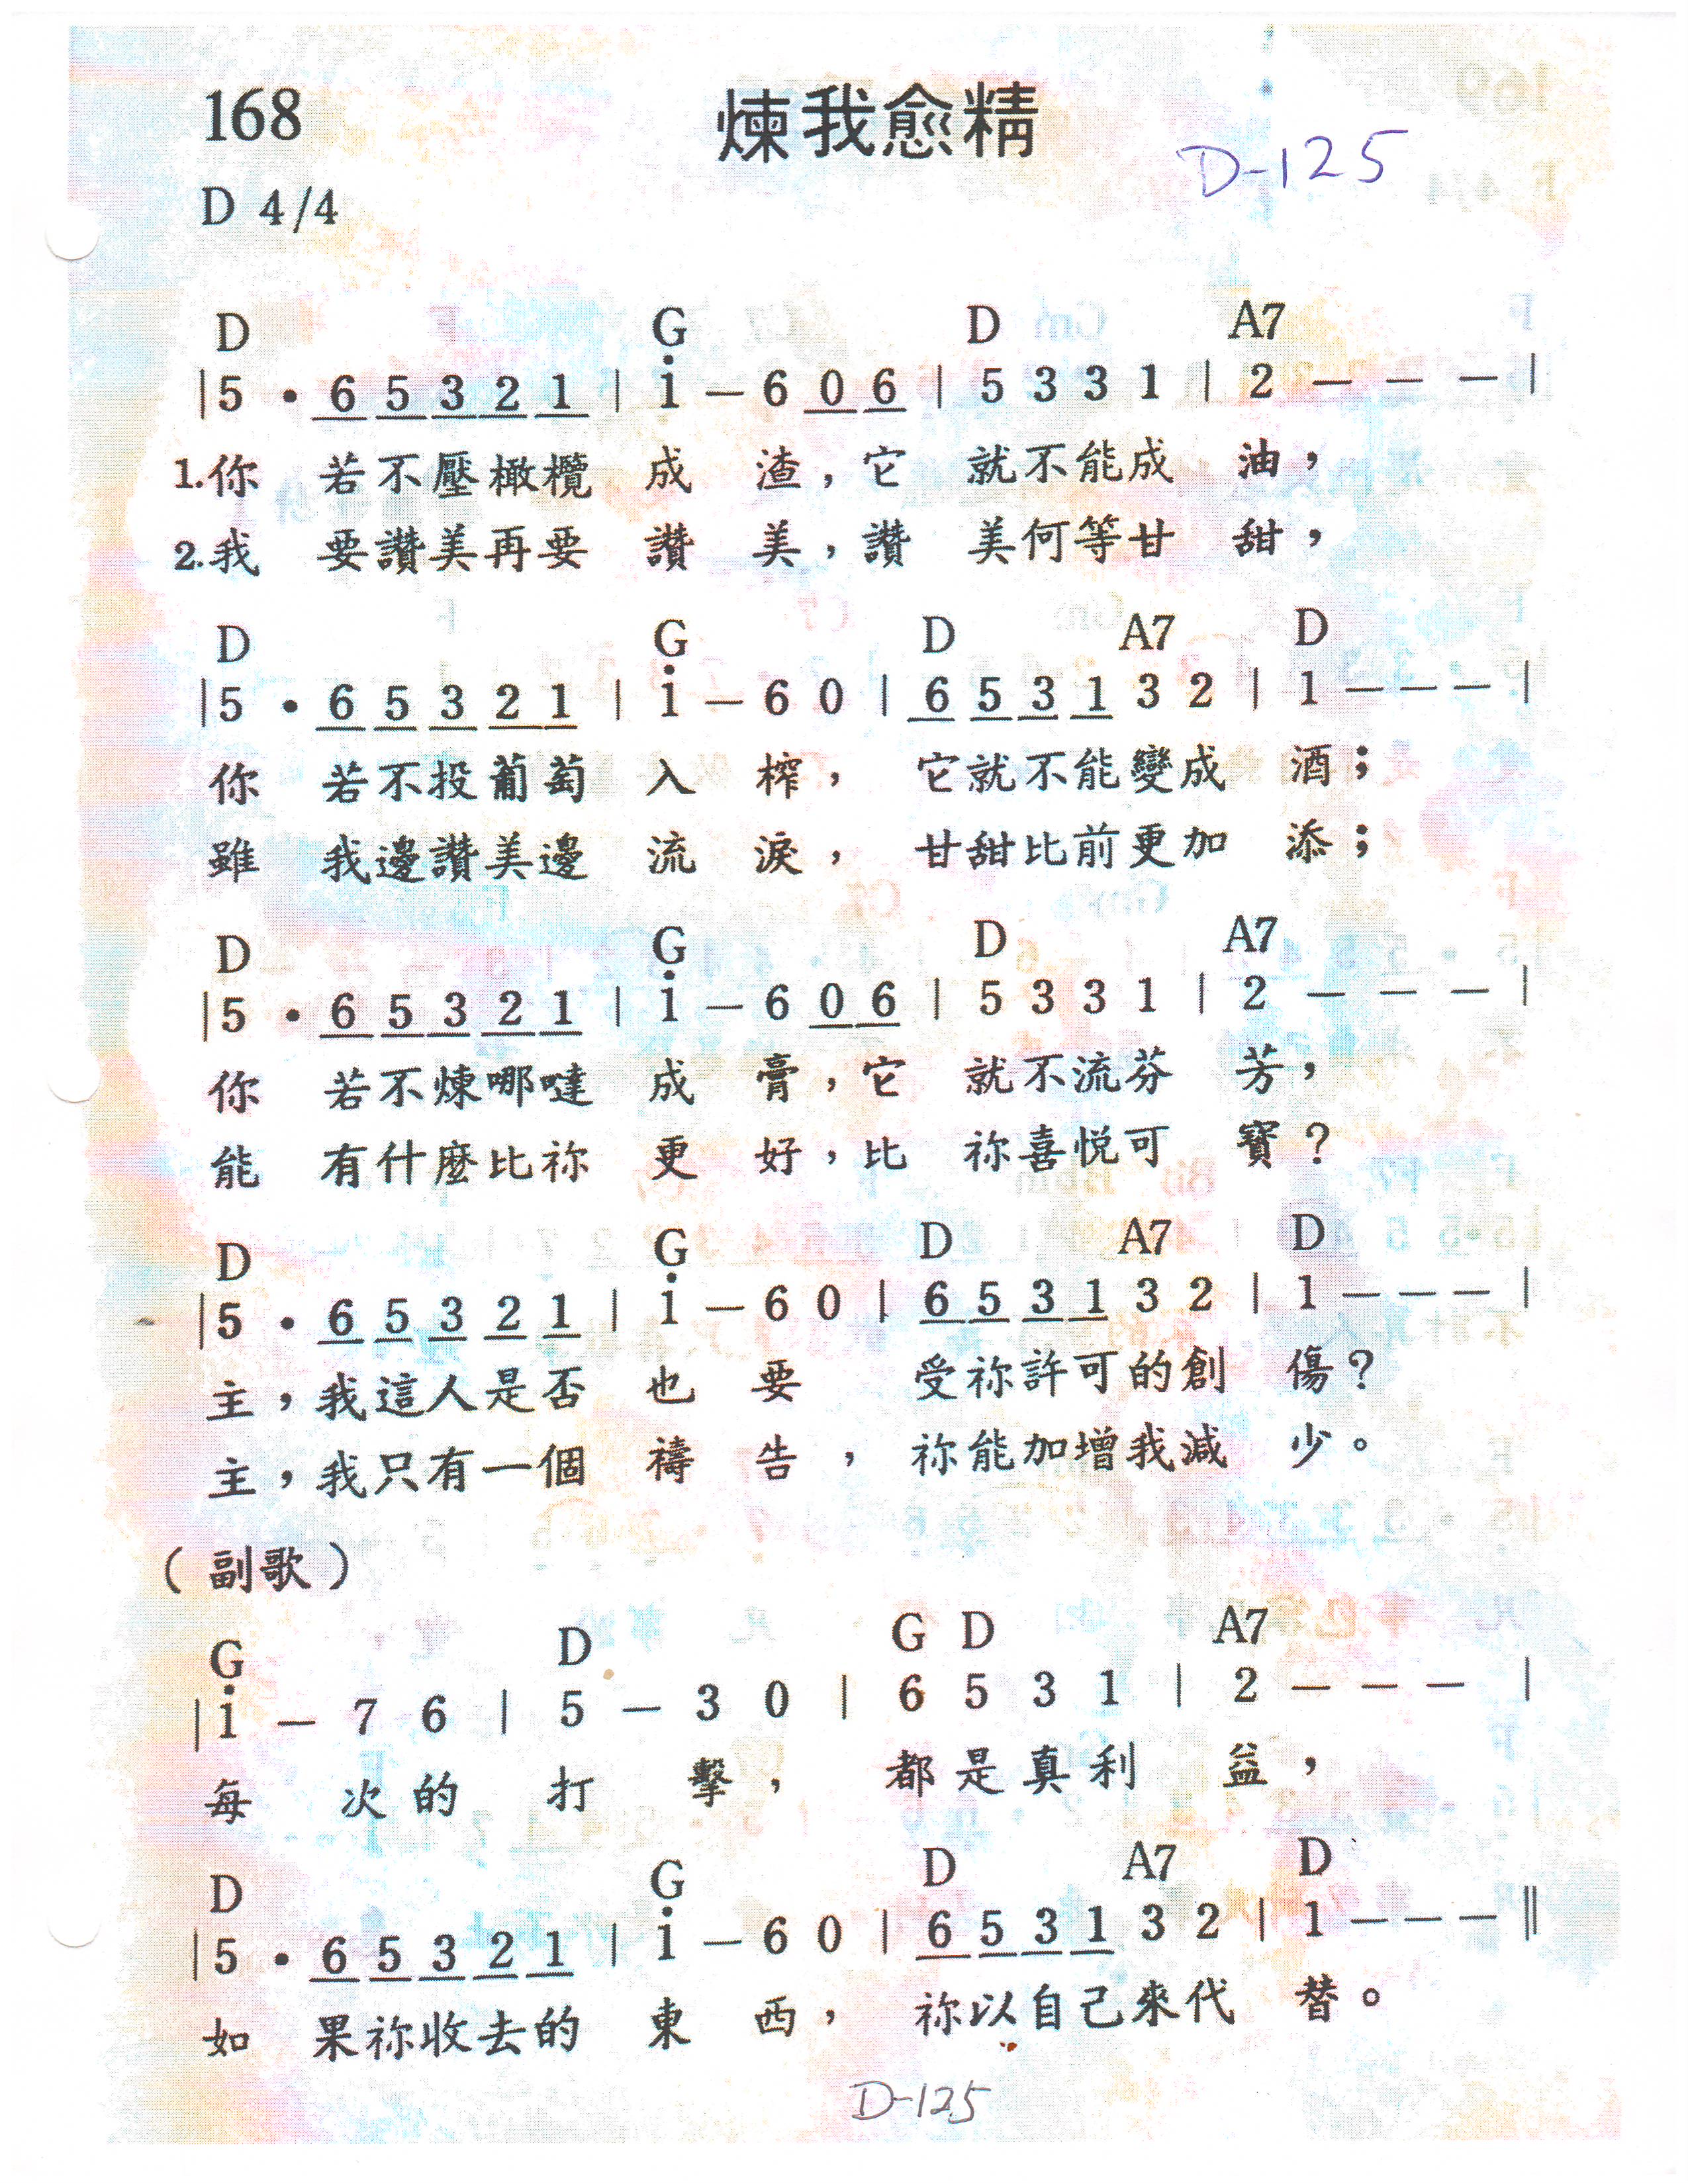 168 煉我愈精 D-125
D 4/4
D G D A7
|5 · 6 5 3 2 1 | i – 6 0 6 | 5 3 3 1 | 2 – – – |
1.你 若不壓橄欖 成 渣，它 就不能成 油，
2.我 要讚美再要 讚 美，讚 美何等甘 甜，
D G D A7 D
|5 · 6 5 3 2 1 | i – 6 0 | 6 5 3 1 3 2 | 1 – – – |
你 若不投葡萄 入 榨， 它就不能變成 酒；
雖 我邊讚美邊 流 淚， 甘甜比前更加 添；
D G D A7
|5 · 6 5 3 2 1 | i – 6 0 6 | 5 3 3 1 | 2 – – – |
你 若不煉哪噠 成 膏，它 就不流芬 芳，
能 有什麼比祢 更 好，比 祢喜悅可 寶？
D G D A7 D
|5 · 6 5 3 2 1 | i – 6 0 | 6 5 3 1 3 2 | 1 – – – |
主，我這人是否 也 要 受祢許可的創 傷？
主，我只有一個 禱 告， 祢能加增我減 少。
（副歌）
G D G D A7
|i – 7 6 | 5 – 3 0 | 6 5 3 1 | 2 – – – |
每 次的 打 擊， 都是真利 益，
D G D A7 D
|5 · 6 5 3 2 1 | i – 6 0 | 6 5 3 1 3 2 | 1 – – – ‖
如 果祢收去的 東 西， 祢以自己來代 替。
D-125